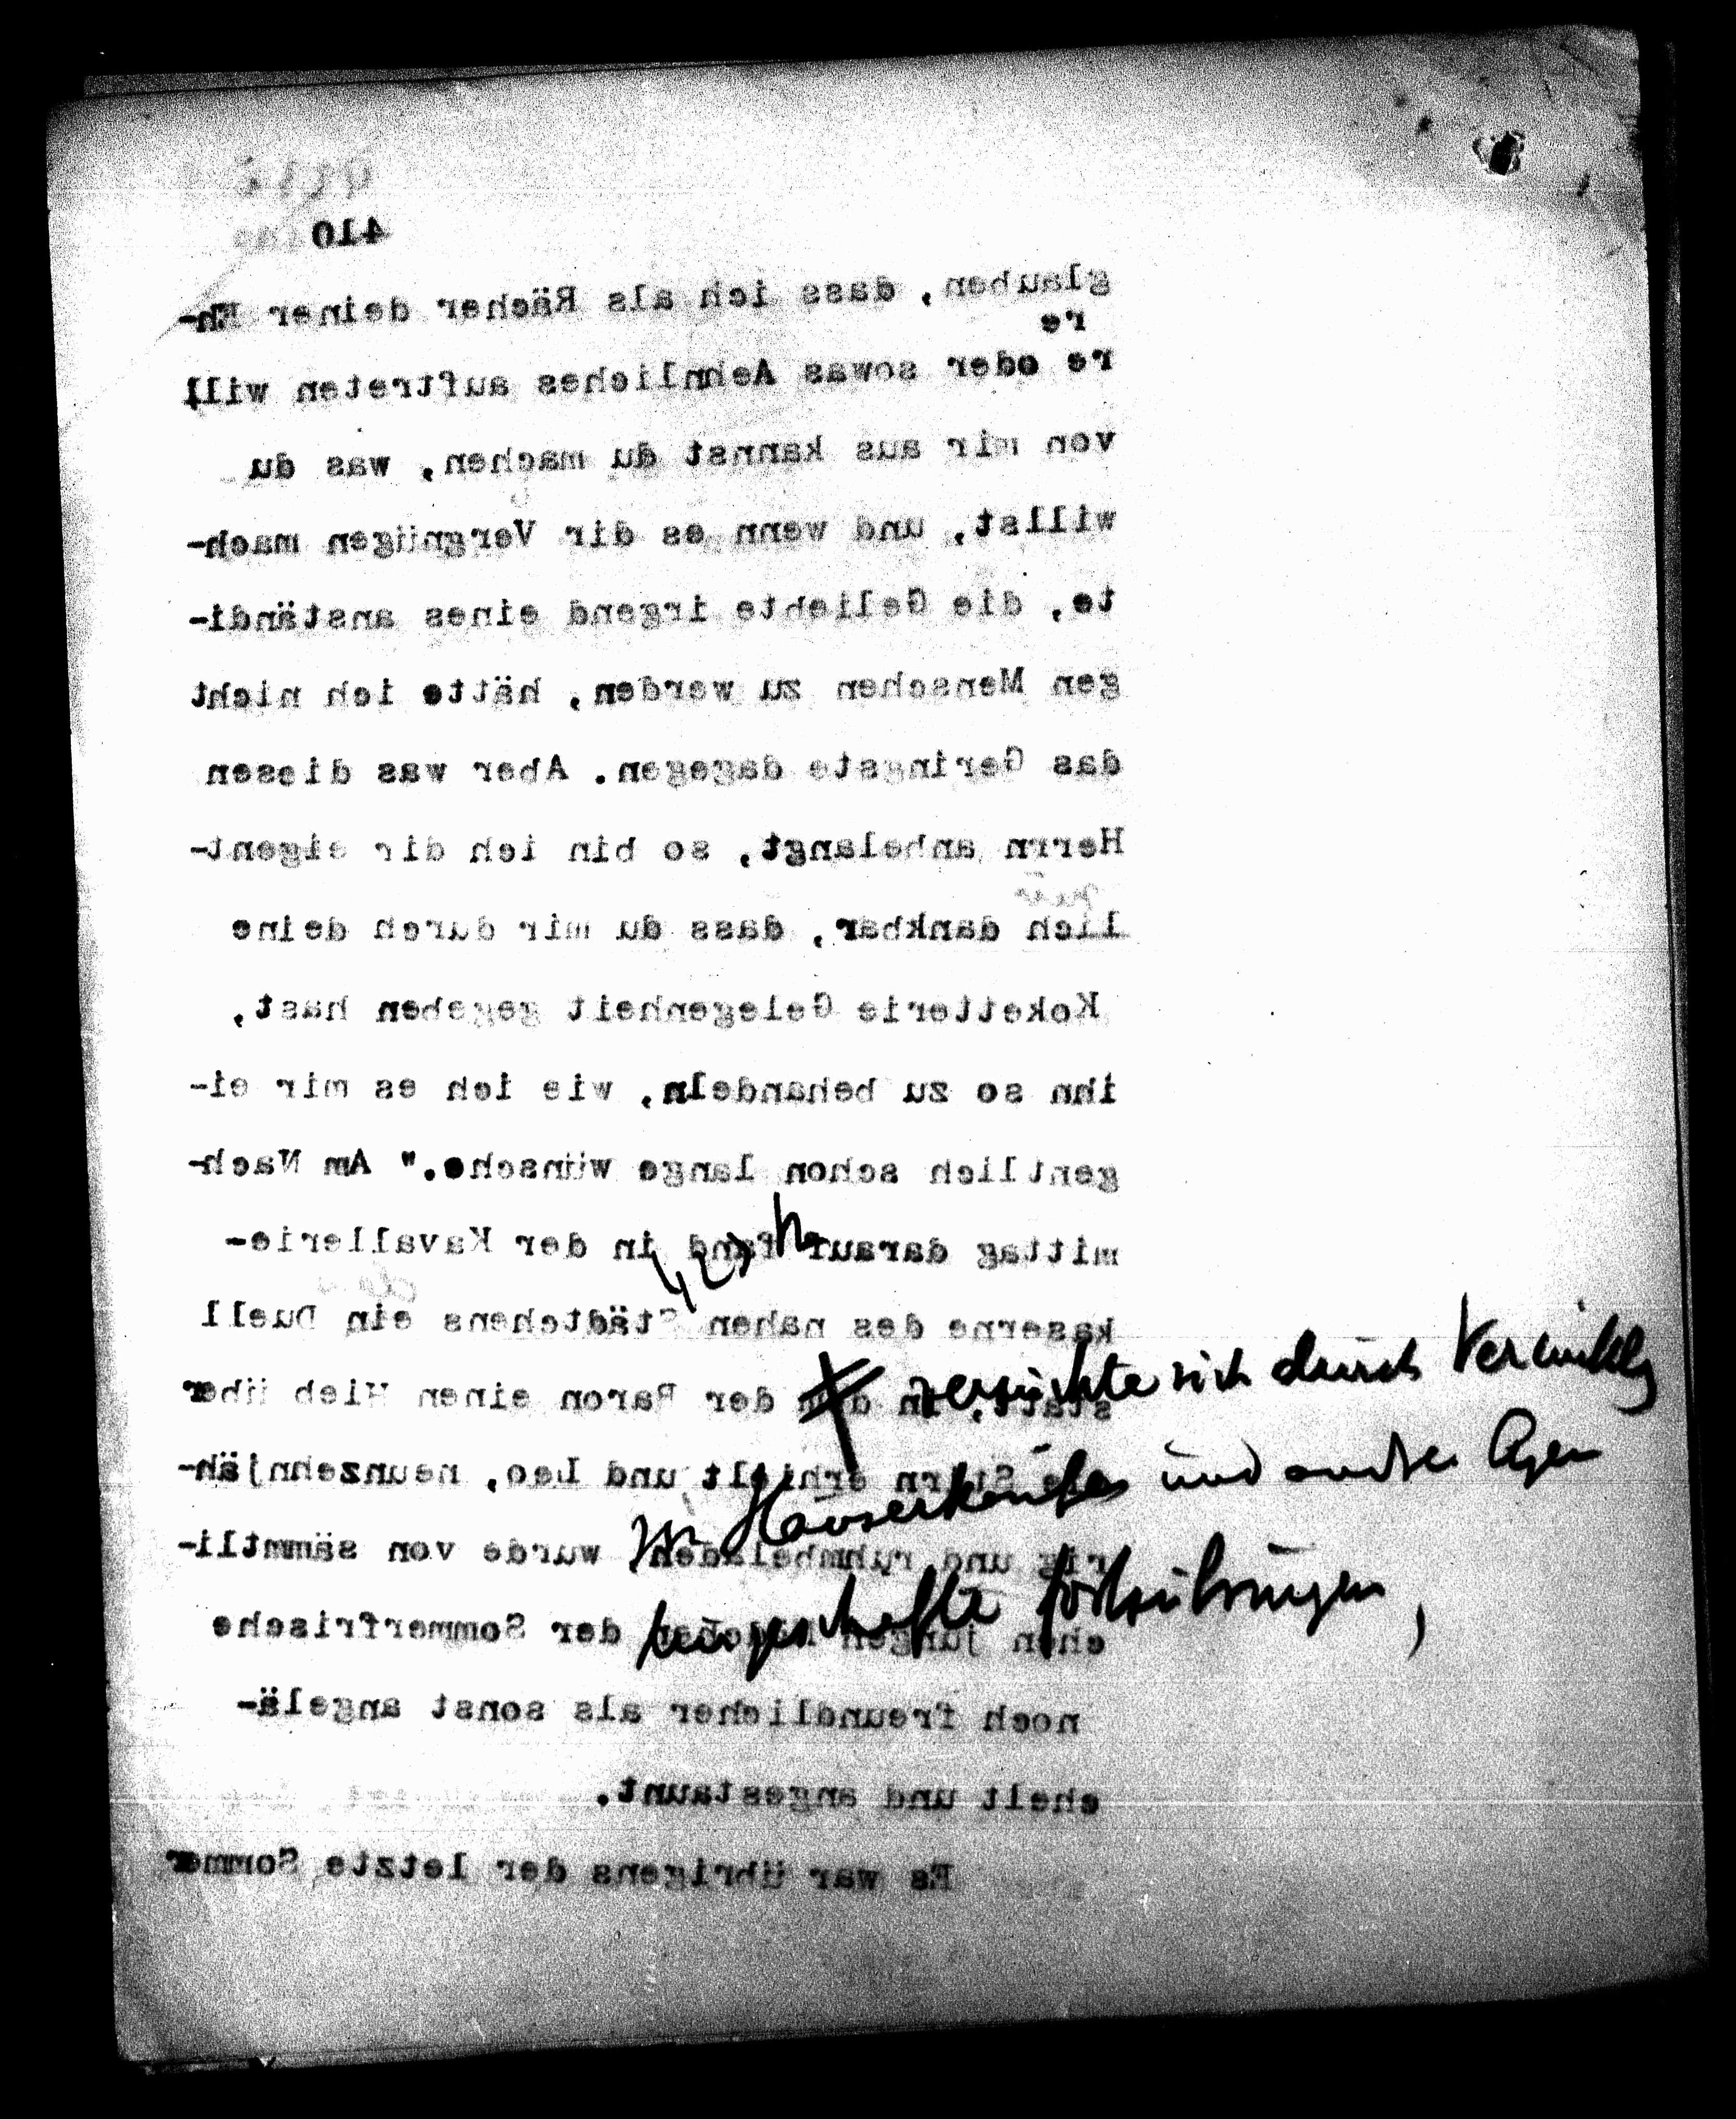 410
glauben, dass ich als Rächer deiner Eh-
re
re oder sowas Aehnliches auftreten will
von mir aus kannst du machen, was du
willst, und wenn es dir Vergnügen mach-
te, die Geliebte irgend eines anständi-
gen Menschen zu werden, hätte ich nicht
das Geringste dagegen. Aber was diesen
Herrn anbelangt, so bin ich dir eigent-
lich dankbar, dass du mir durch deine
Koketterie Gelegenheit gegeben hast,
ihn so zu behandeln, wie ich es mir ei-
gentlich schon lange wünsche." Am Nach-
mittag darauf fand in der Kavallerie-
kaserne des nahen Städtchens ein Duell
statt, in dem der Baron einen Hieb über
die Stirn erhielt und Leo, neunzehnjäh-
rig und ruhmbeladen, wurde von sämmtli-
chen jungen der Sommerfrische
noch freundlicher als sonst angelä-
chelt und angestaunt.
Es war übrigens der letzte Sommer
427
versuchte sich durch Vermittlg
von Häuserkäufen und andre Agen